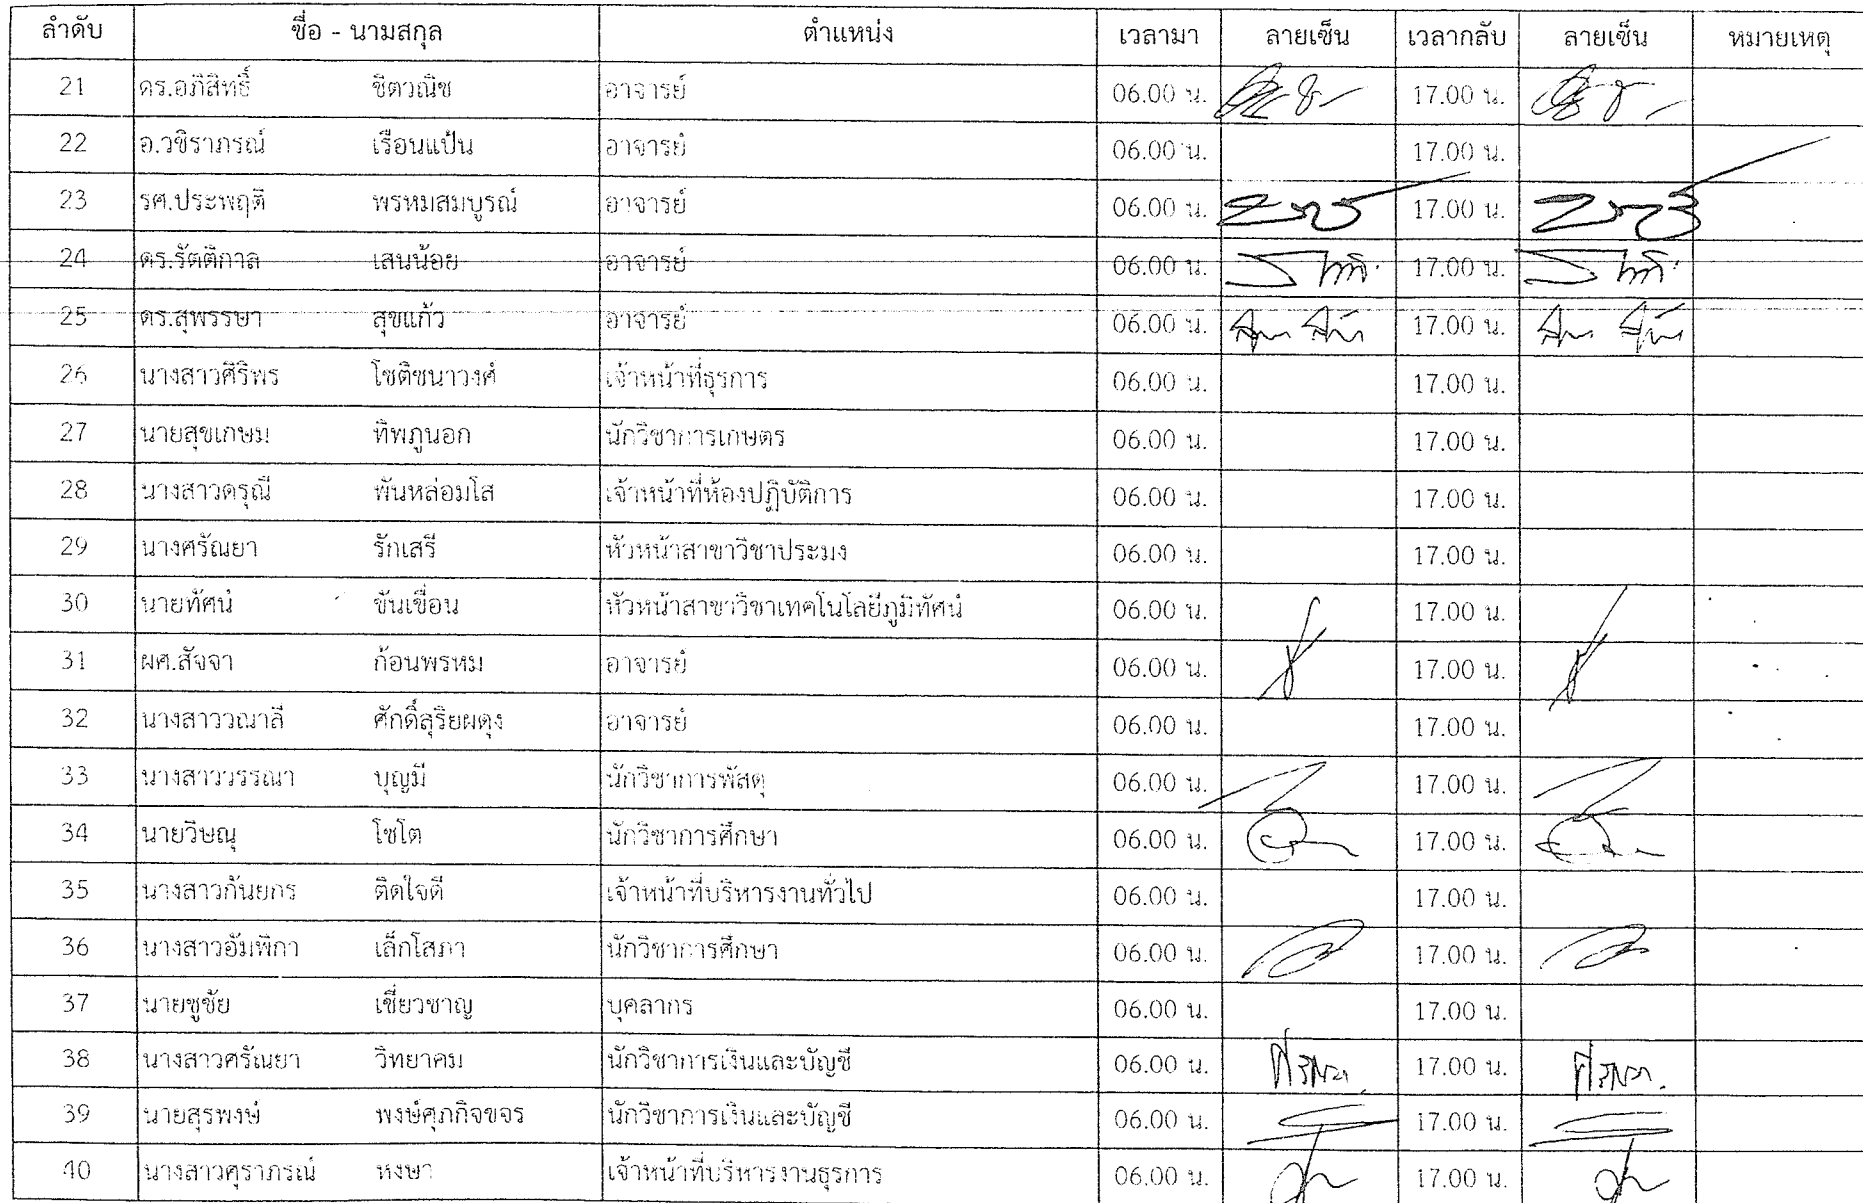 ลำดับ ชื่อ - นามสกุล ตำแหน่ง เวลามา ลายเซ็น เวลากลับ ลายเซ็น หมายเหตุ
21 ดร.อภิสิทธิ์ ชิตวณิช อาจารย์ 06.00 น. 17.00 น.
22 อ.วชิราภรณ์ เรือนแป้น อาจารย์ 06.00 น. 17.00 น.
23 รศ.ประพฤติ พรหมสมบูรณ์ อาจารย์ 06.00 น. 17.00 น.
24 ดร.รัตติกาล เสนน้อย อาจารย์ 06.00 น. 17.00 น.
25 ดร.สุพรรษา สุขแก้ว อาจารย์ 06.00 น. 17.00 น.
26 นางสาวศิริพร โชติชนาวงศ์ เจ้าหน้าที่ธุรการ 06.00 น. 17.00 น.
27 นายสุขเกษม ทิพภูนอก นักวิชาการเกษตร 06.00 น. 17.00 น.
28 นางสาวดรุณี พันหล่อมโส เจ้าหน้าที่ห้องปฏิบัติการ 06.00 น. 17.00 น.
29 นางศรัณยา รักเสรี หัวหน้าสาขาวิชาประมง 06.00 น. 17.00 น.
30 นายทัศน์ ขันเขื่อน หัวหน้าสาขาวิชาเทคโนโลยีภูมิทัศน์ 06.00 น. 17.00 น.
31 ผศ.สัจจา ก้อนพรหม อาจารย์ 06.00 น. 17.00 น.
32 นางสาววณาลี ศักดิ์สุริยผดุง อาจารย์ 06.00 น. 17.00 น.
33 นางสาววรรณา บุญมี นักวิชาการพัสดุ 06.00 น. 17.00 น.
34 นายวิษณุ โชโต นักวิชาการศึกษา 06.00 น. 17.00 น.
35 นางสาวกันยกร ติดใจดี เจ้าหน้าที่บริหารงานทั่วไป 06.00 น. 17.00 น.
36 นางสาวอัมพิกา เล็กโสภา นักวิชาการศึกษา 06.00 น. 17.00 น.
37 นายชูชัย เชี่ยวชาญ บุคลากร 06.00 น. 17.00 น.
38 นางสาวศรัณยา วิทยาคม นักวิชาการเงินและบัญชี 06.00 น. 17.00 น.
39 นายสุรพงษ์ พงษ์ศุภกิจขจร นักวิชาการเงินและบัญชี 06.00 น. 17.00 น.
40 นางสาวศุราภรณ์ หงษา เจ้าหน้าที่บริหารงานธุรการ 06.00 น. 17.00 น.